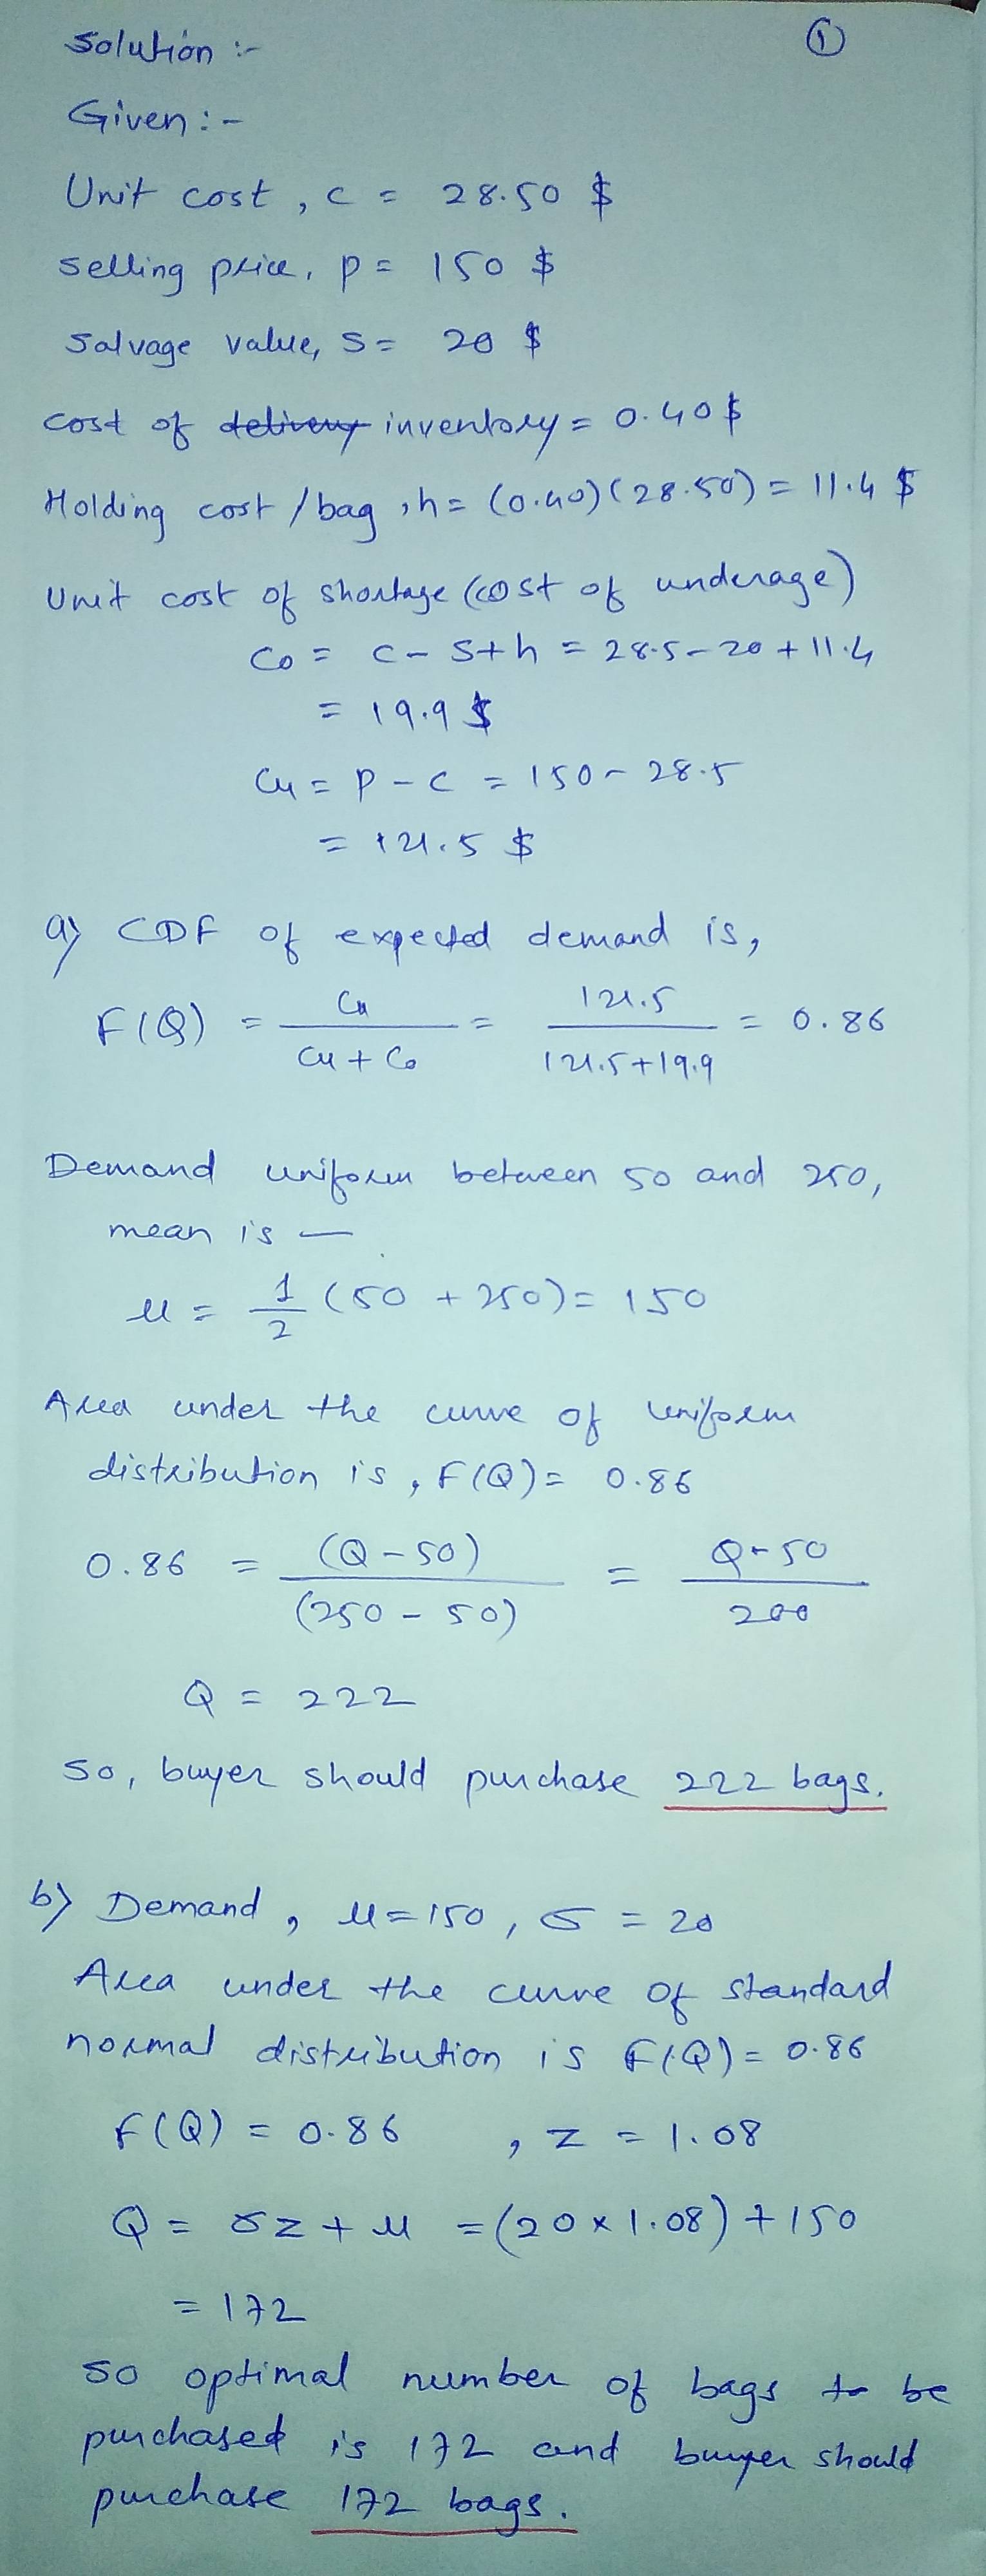 Solution :-
①
Given :-
Unit cost, c = 28.50 $
selling price, p = 150 $
Salvage value, S = 20 $
cost of delivery inventory = 0.40 $
Holding cost / bag, h = (0.40)(28.50) = 11.4 $
Unit cost of shortage (cost of underage)
Co = c - S + h = 28.5 - 20 + 11.4
= 19.9 $
Cu = P - C = 150 - 28.5
= 121.5 $
a) CDF of expected demand is,
F(Q) = Cu / Cu + Co = 121.5 / 121.5 + 19.9 = 0.86
Demand uniform between 50 and 250,
mean is —
μ = 1/2 (50 + 250) = 150
Area under the curve of uniform
distribution is, F(Q) = 0.86
0.86 = (Q - 50) / (250 - 50) = Q - 50 / 200
Q = 222
So, buyer should purchase 222 bags.
b) Demand, μ = 150, σ = 20
Area under the curve of standard
normal distribution is F(Q) = 0.86
F(Q) = 0.86 , z = 1.08
Q = σz + μ = (20 x 1.08) + 150
= 172
so optimal number of bags to be
purchased is 172 and buyer should
purchase 172 bags.